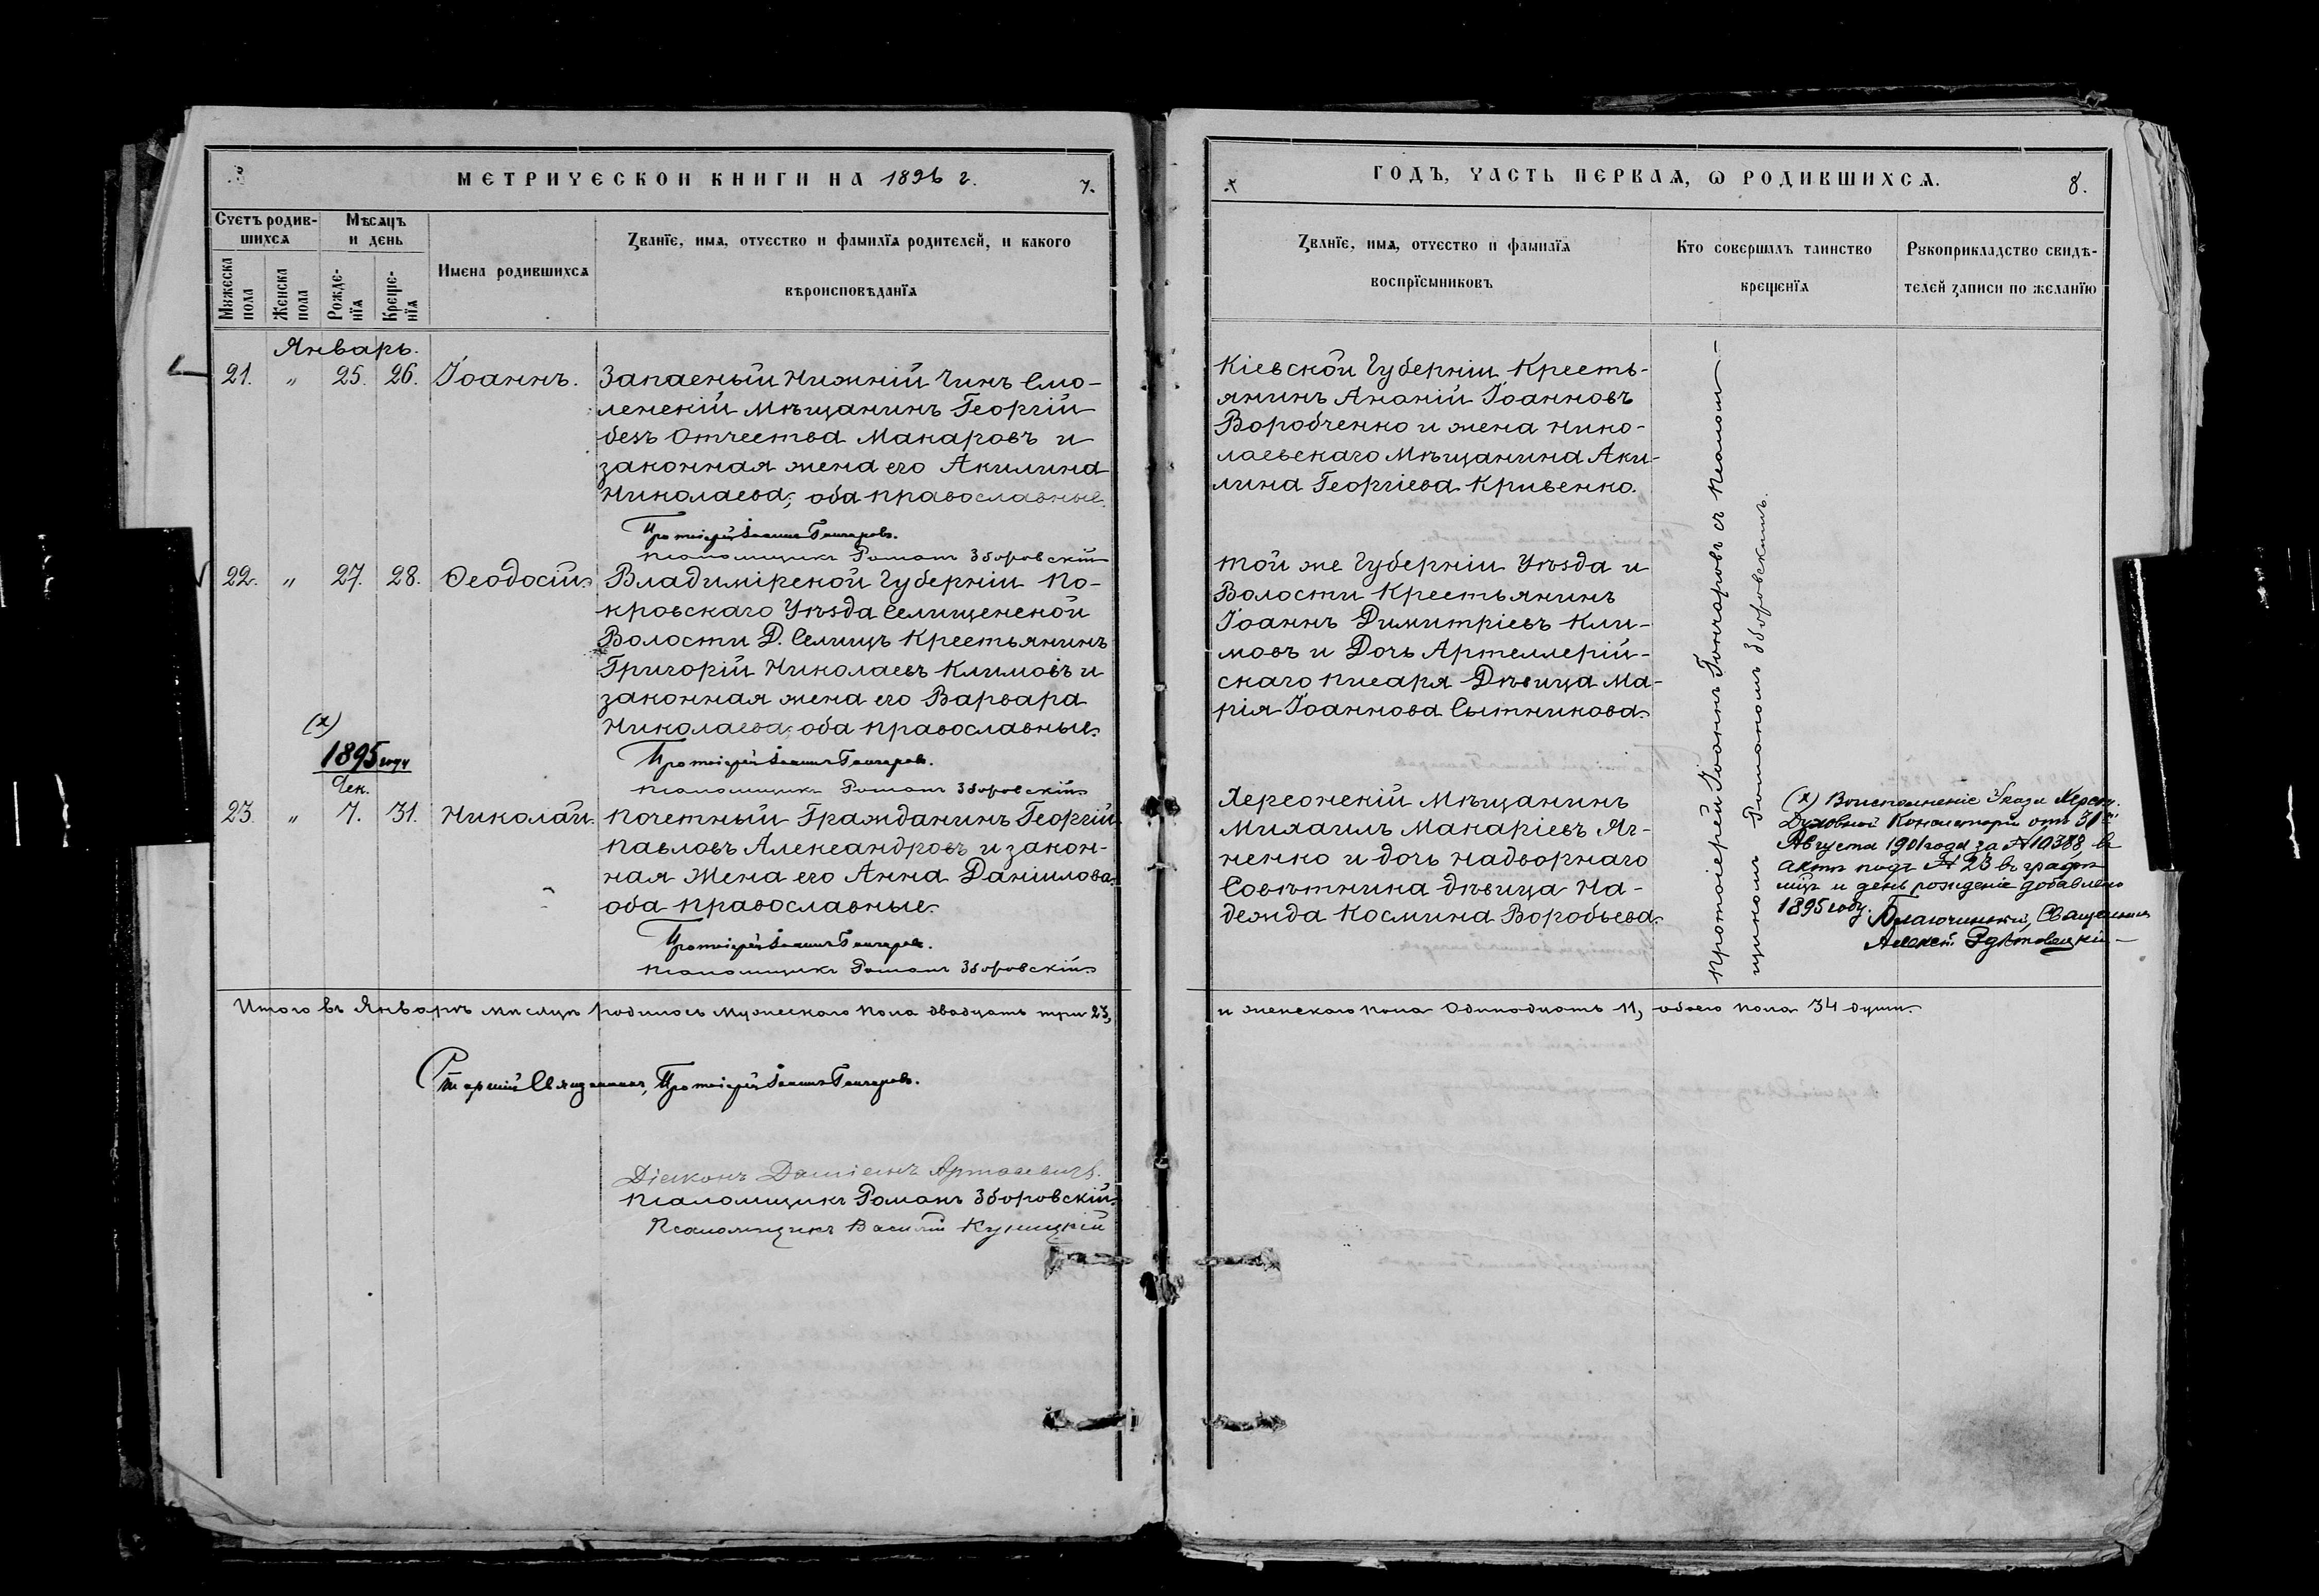 МЕТРИЧЕСКОЙ КНИГИ НА 1896 г.
7.
Счетъ родив-
шихся
Мѣсяцъ
и день
Мужеска
пола
Женска
пола
Рожде-
нїя
Креще-
нїя
Имена родившихся
Званїе, имя, отчество и фамилїя родителей, и какого
вѣроисповѣданїя
Январь.
21. " 25. 26. Іоаннъ.
Запасный Нижній Чинъ Смо-
ленскій Мѣщанинъ Георгій
безъ Отчества Макаровъ и
законная жена его Акилина
Николаева; оба православные
Протоіерей Іоаннъ Гончаровъ.
Псаломщикъ Романъ Зборовскій
22. " 27. 28. Ѳеодосій.
Владимірской Губерніи По-
кровскаго Уѣзда Селищенской
Волости Д. Селищъ Крестьянинъ
Григорій Николаевъ Климовъ и
законная жена его Варвара
Николаева; оба православные.
Протоіерей Іоаннъ Гончаровъ.
Псаломщикъ Романъ Зборовскій
(х)
1895 году
Дек.
23. " 7. 31. Николай.
Почетный Гражданинъ Георгій
Павловъ Александровъ и закон-
ная Жена его Анна Даніилова.
оба православные.
Протоіерей Іоаннъ Гончаровъ.
Псаломщикъ Романъ Зборовскій
Итого въ Январѣ мѣсяцѣ родилось мужескаго пола двадцать три 23,
Старшій Священникъ, Протоіерей Іоаннъ Гончаровъ.
Діаконъ Даміанъ
Псаломщикъ Романъ Зборовскій
Псаломщикъ Василій Куницкій
ГОДЪ, ЧАСТЬ ПЕРВАЯ, Ѡ РОДИВШИХСЯ.
8.
Званїе, имя, отчество и фамилїя
воспрїемниковъ
Кто совершалъ таинство
крещенїя
Рукоприкладство свидѣ-
телей записи по желанїю
Кіевской Губерніи Кресть-
янинъ Ананій Іоанновъ
Воробченко и жена Нико-
лаевскаго Мѣщанина Аки-
лина Георгіева Кривенко.
той же Губерніи Уѣзда и
Волости Крестьянинъ
Іоаннъ Димитріевъ Кли-
мовъ и Дочь Артеллерій-
скаго писаря Дѣвица Ма-
рія Іоаннова Сытникова.
Херсонскій Мѣщанинъ
Михаилъ Макаріевъ Яг-
ненко и дочь надворнаго
Совѣтника дѣвица На-
дежда Космина Воробьева.
Протоіерей Іоаннъ Гончаровъ съ псалом-
щикомъ Романомъ Зборовскимъ.
(х) Воисполненіе Указа Херсон.
Духовной Консисторіи отъ 31го
Августа 1901 года за № 10388, въ
актѣ подъ № 23 въ графѣ
мцъ и день рожденіе добавлено
1895 году. Благочинный, Священникъ
Алексѣй
и женскаго пола Одинадцать 11, обоего пола 34 души.